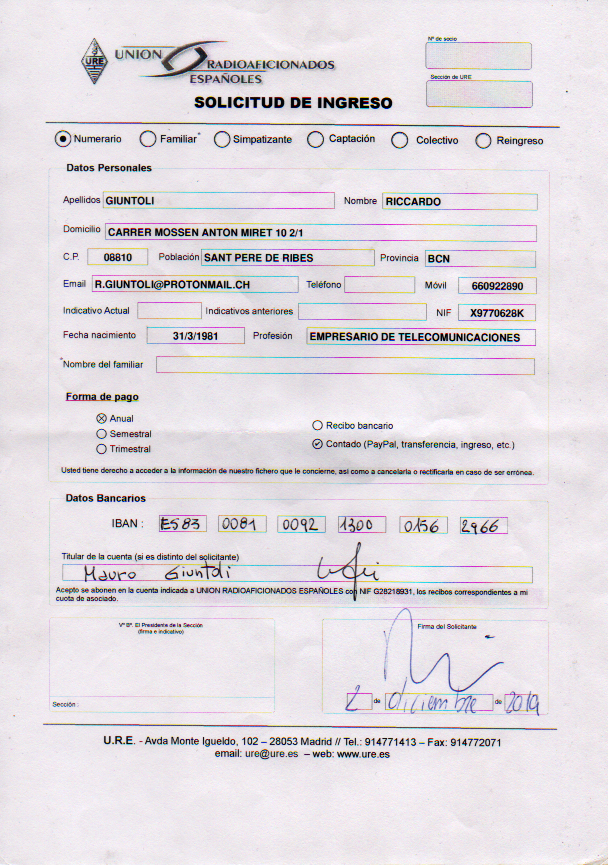 URE
UNION RADIOAFICIONADOS ESPAÑOLES
Nº de socio
Sección de URE
SOLICITUD DE INGRESO
Numerario Familiar* Simpatizante Captación Colectivo Reingreso
Datos Personales
Apellidos GIUNTOLI Nombre RICCARDO
Domicilio CARRER MOSSEN ANTON MIRET 10 2/1
C.P. 08810 Población SANT PERE DE RIBES Provincia BCN
Email R.GIUNTOLI@PROTONMAIL.CH Teléfono Móvil 660922890
Indicativo Actual Indicativos anteriores NIF X9770628K
Fecha nacimiento 31/3/1981 Profesión EMPRESARIO DE TELECOMUNICACIONES
*Nombre del familiar
Forma de pago
Anual
Semestral
Trimestral
Recibo bancario
Contado (PayPal, transferencia, ingreso, etc.)
Usted tiene derecho a acceder a la información de nuestro fichero que le concierne, asi como a cancelarla o rectificarla en caso de ser errónea.
Datos Bancarios
IBAN : ES83 0081 0092 1300 0156 2966
Titular de la cuenta (si es distinto del solicitante)
Mauro Giuntoli
Acepto se abonen en la cuenta indicada a UNION RADIOAFICIONADOS ESPAÑOLES con NIF G28218931, los recibos correspondientes a mi
cuota de asociado.
Vº Bº. El Presidente de la Sección
(firma e indicativo)
Sección :
Firma del Solicitante
2 de diciembre de 2019
U.R.E. - Avda Monte Igueldo, 102 – 28053 Madrid // Tel.: 914771413 – Fax: 914772071
email: ure@ure.es – web: www.ure.es